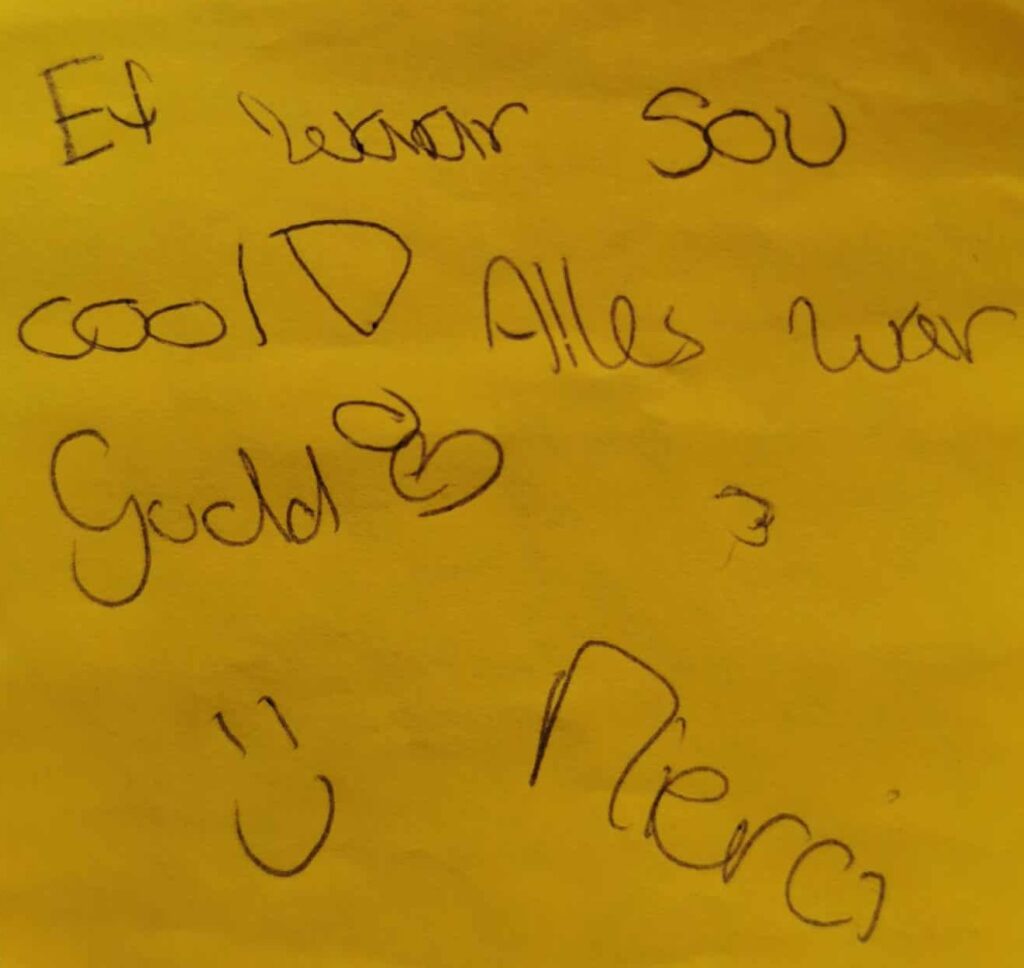 Et war sou
cool Alles war
Gudd
Merci